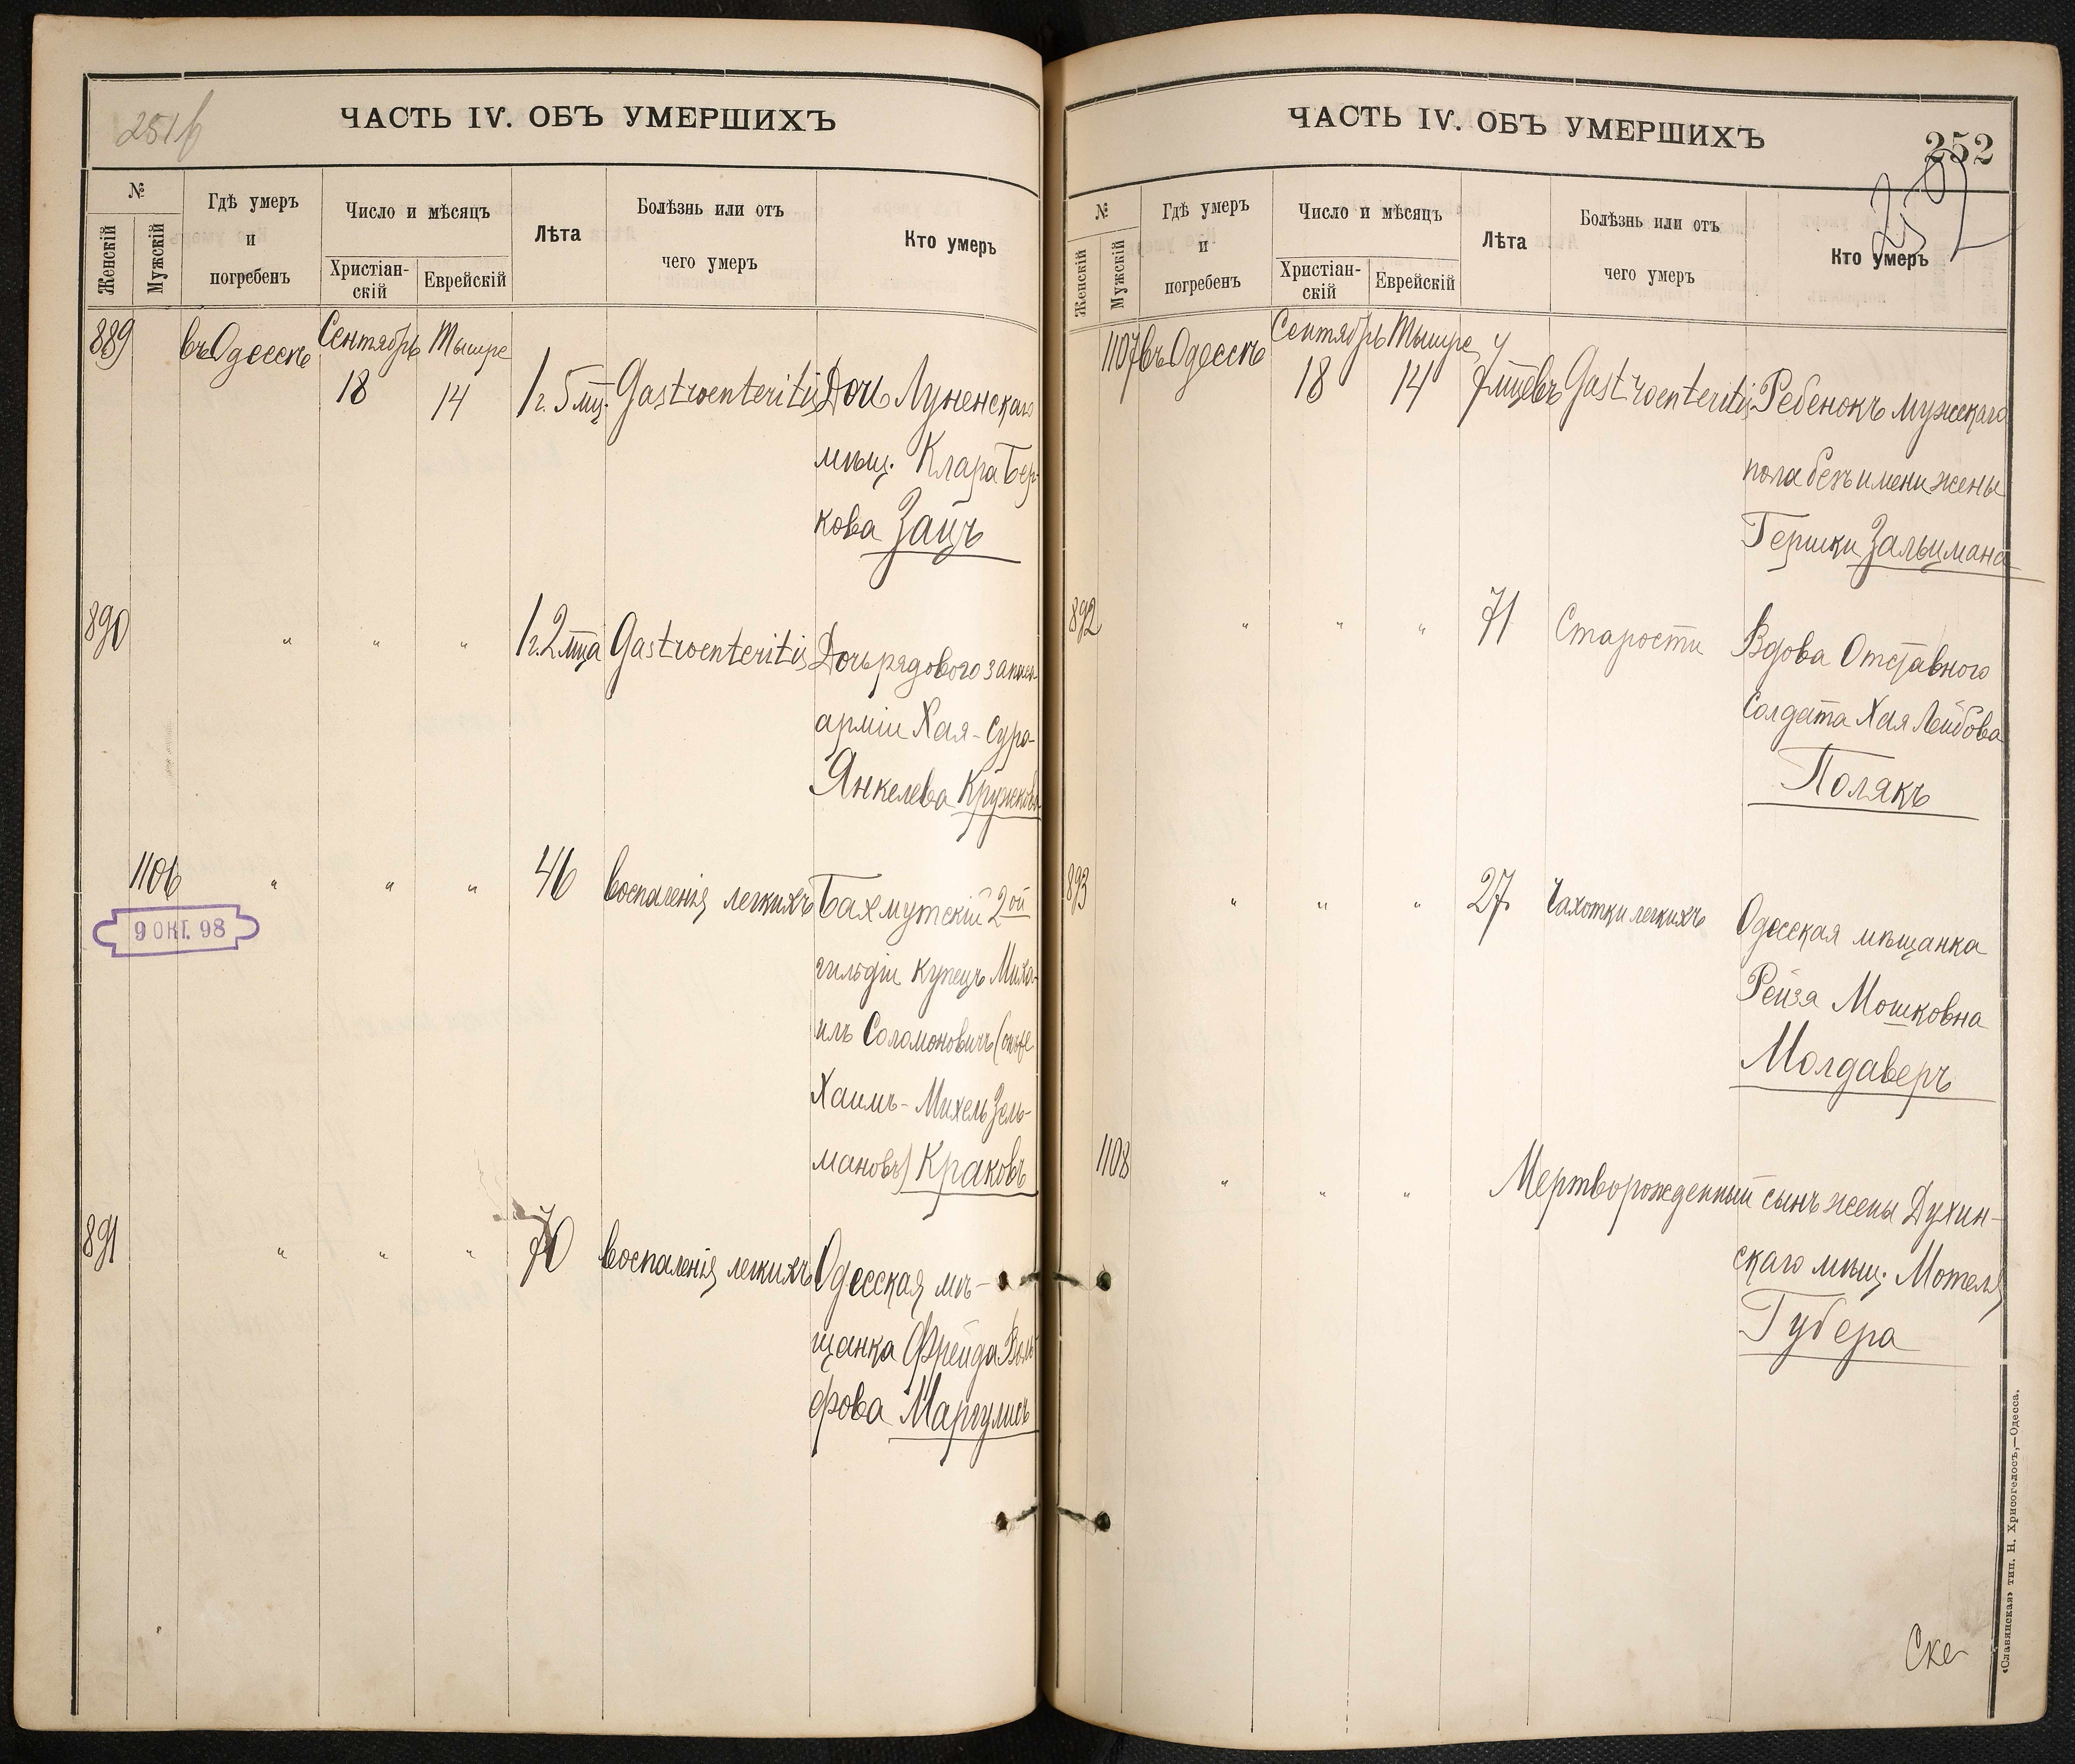 251б
ЧАСТЬ IV. ОБЪ УМЕРШИХЪ
№
Женскій
Мужскій
Гдѣ умеръ
и
погребенъ
Число и мѣсяцъ
Христіан-
скій
Еврейскій
Лѣта
Болѣзнь или отъ
чего умеръ
Кто умеръ
889 въ Одессѣ Сентябрь Тышре
18 14 1 г. 5 мц. Gastroenteritis Дочь Луненскаго
мѣщ. Клара Бер-
кова Зацъ
890 " " " 1 г. 2 мца Gastroenteritis Дочь рядового запасн.
арміи Хая-Сура-
Янкелева
1106 " " " 46 Воспаленія легкихъ Бахмутскій 2ой
9 ОКТ. 98
гильдіи купецъ Миха-
илъ Соломоновичъ (онъ же
Хаимъ-Михель Зель-
мановъ) Краковъ
891 " " " 70 Воспаленія легкихъ Одесская мѣ-
щанка Фрейда Воль-
фова Маргулисъ
ЧАСТЬ IV. ОБЪ УМЕРШИХЪ
252
№
Женскій
Мужскій
Гдѣ умеръ
и
погребенъ
Число и мѣсяцъ
Христіан-
скій
Еврейскій
Лѣта
Болѣзнь или отъ
чего умеръ
Кто умеръ
1107 въ Одессѣ Сентябрь Тышре
18 14 мцевъ Gastroenteritis Ребенокъ мужскаго
пола безъ имени жены
Гершки Зальцмана
892 " " " 71 Старости Вдова Отставного
Солдата Хая Лейбова
Полякъ
893 " " " 27 Чахотки легкихъ Одесская мѣщанка
Рейзя Мошковна
Молдаверъ
1108 " " " Мертворожденный сынъ жены Духин-
скаго мѣщ. Мотеля
Губера
Ске
«Славянская» тип. Н. Хрисогелосъ,—Одесса.